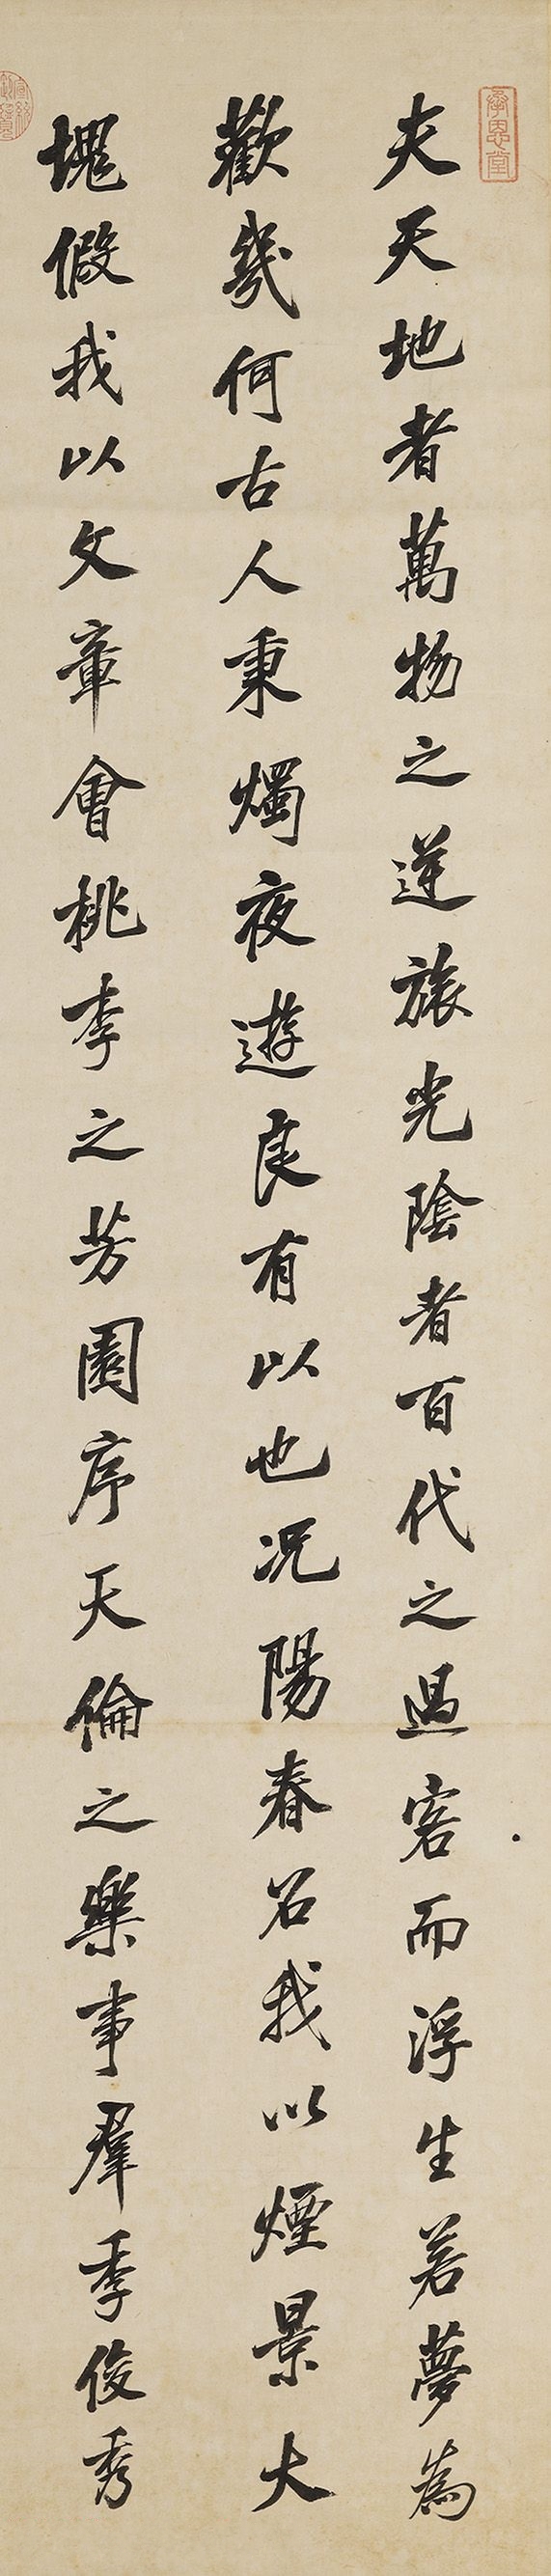 承恩堂
夫天地者萬物之逆旅光陰者百代之過客而浮生若夢為
歡幾何古人秉燭夜遊良有以也況陽春召我以煙景大
塊假我以文章會桃李之芳園序天倫之樂事羣季俊秀